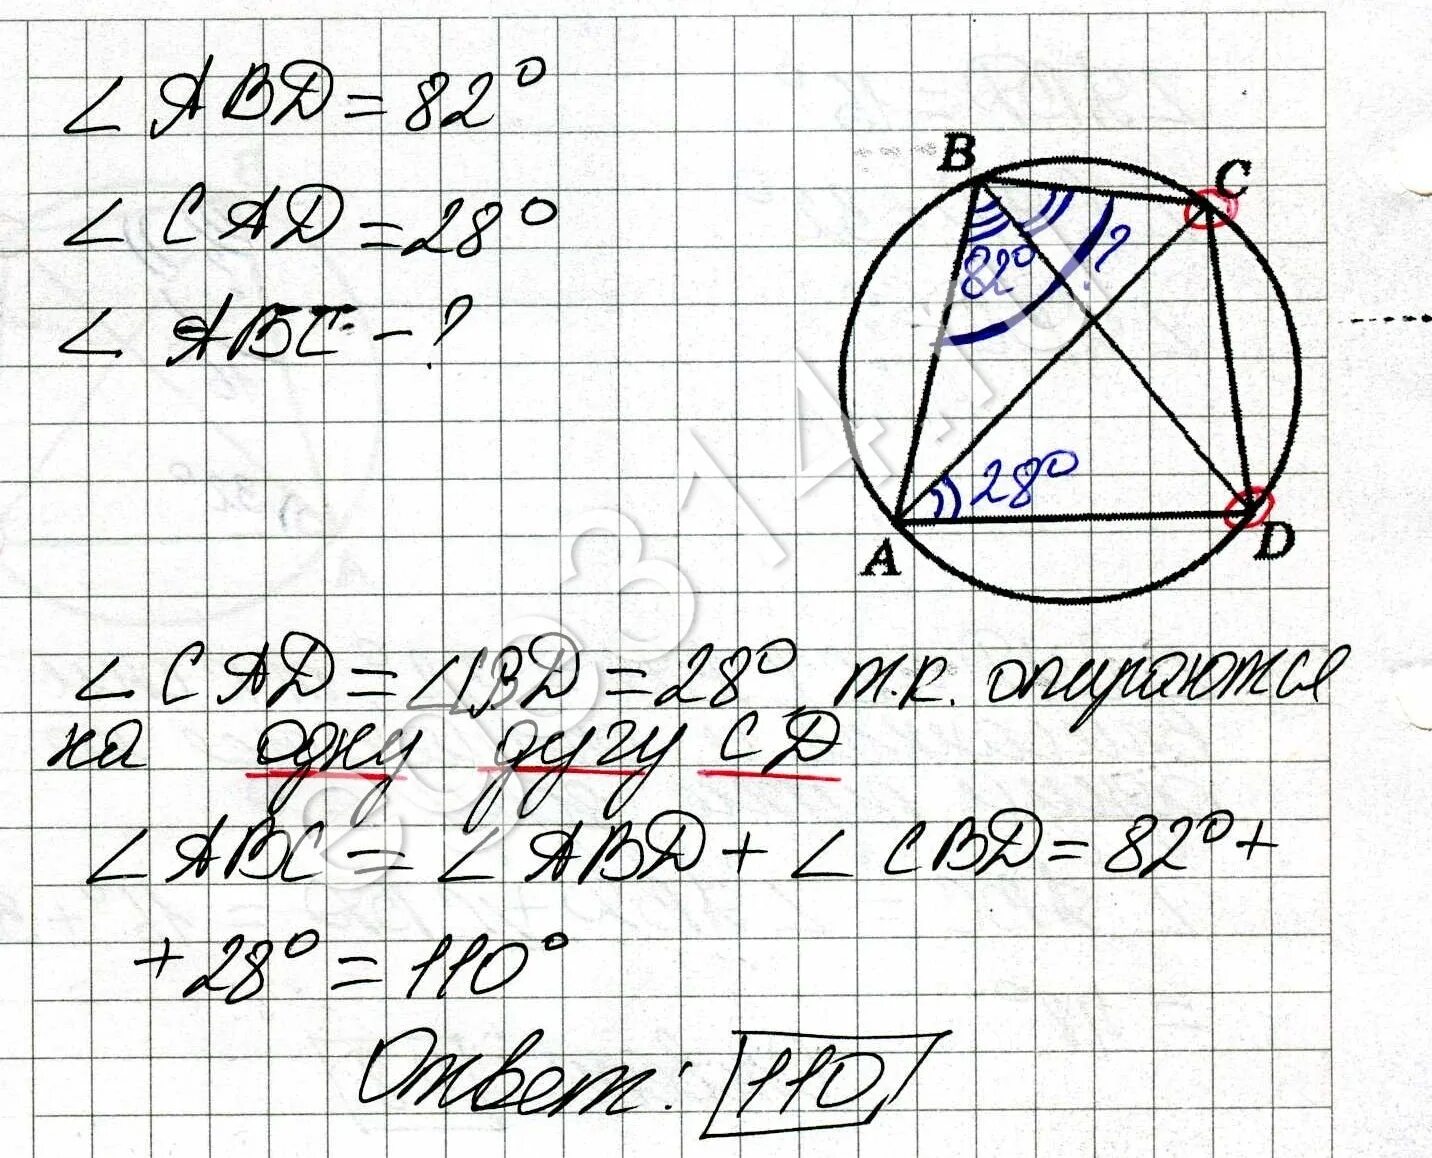 ∠ABD = 82°
∠CAD = 28°
∠ABC - ?
B
C
82°
?
28°
A
D
∠CAD = ∠CBD = 28° т.к. опираются
на одну дугу CD
∠ABC = ∠ABD + ∠CBD = 82° +
+ 28° = 110°
Ответ: 110